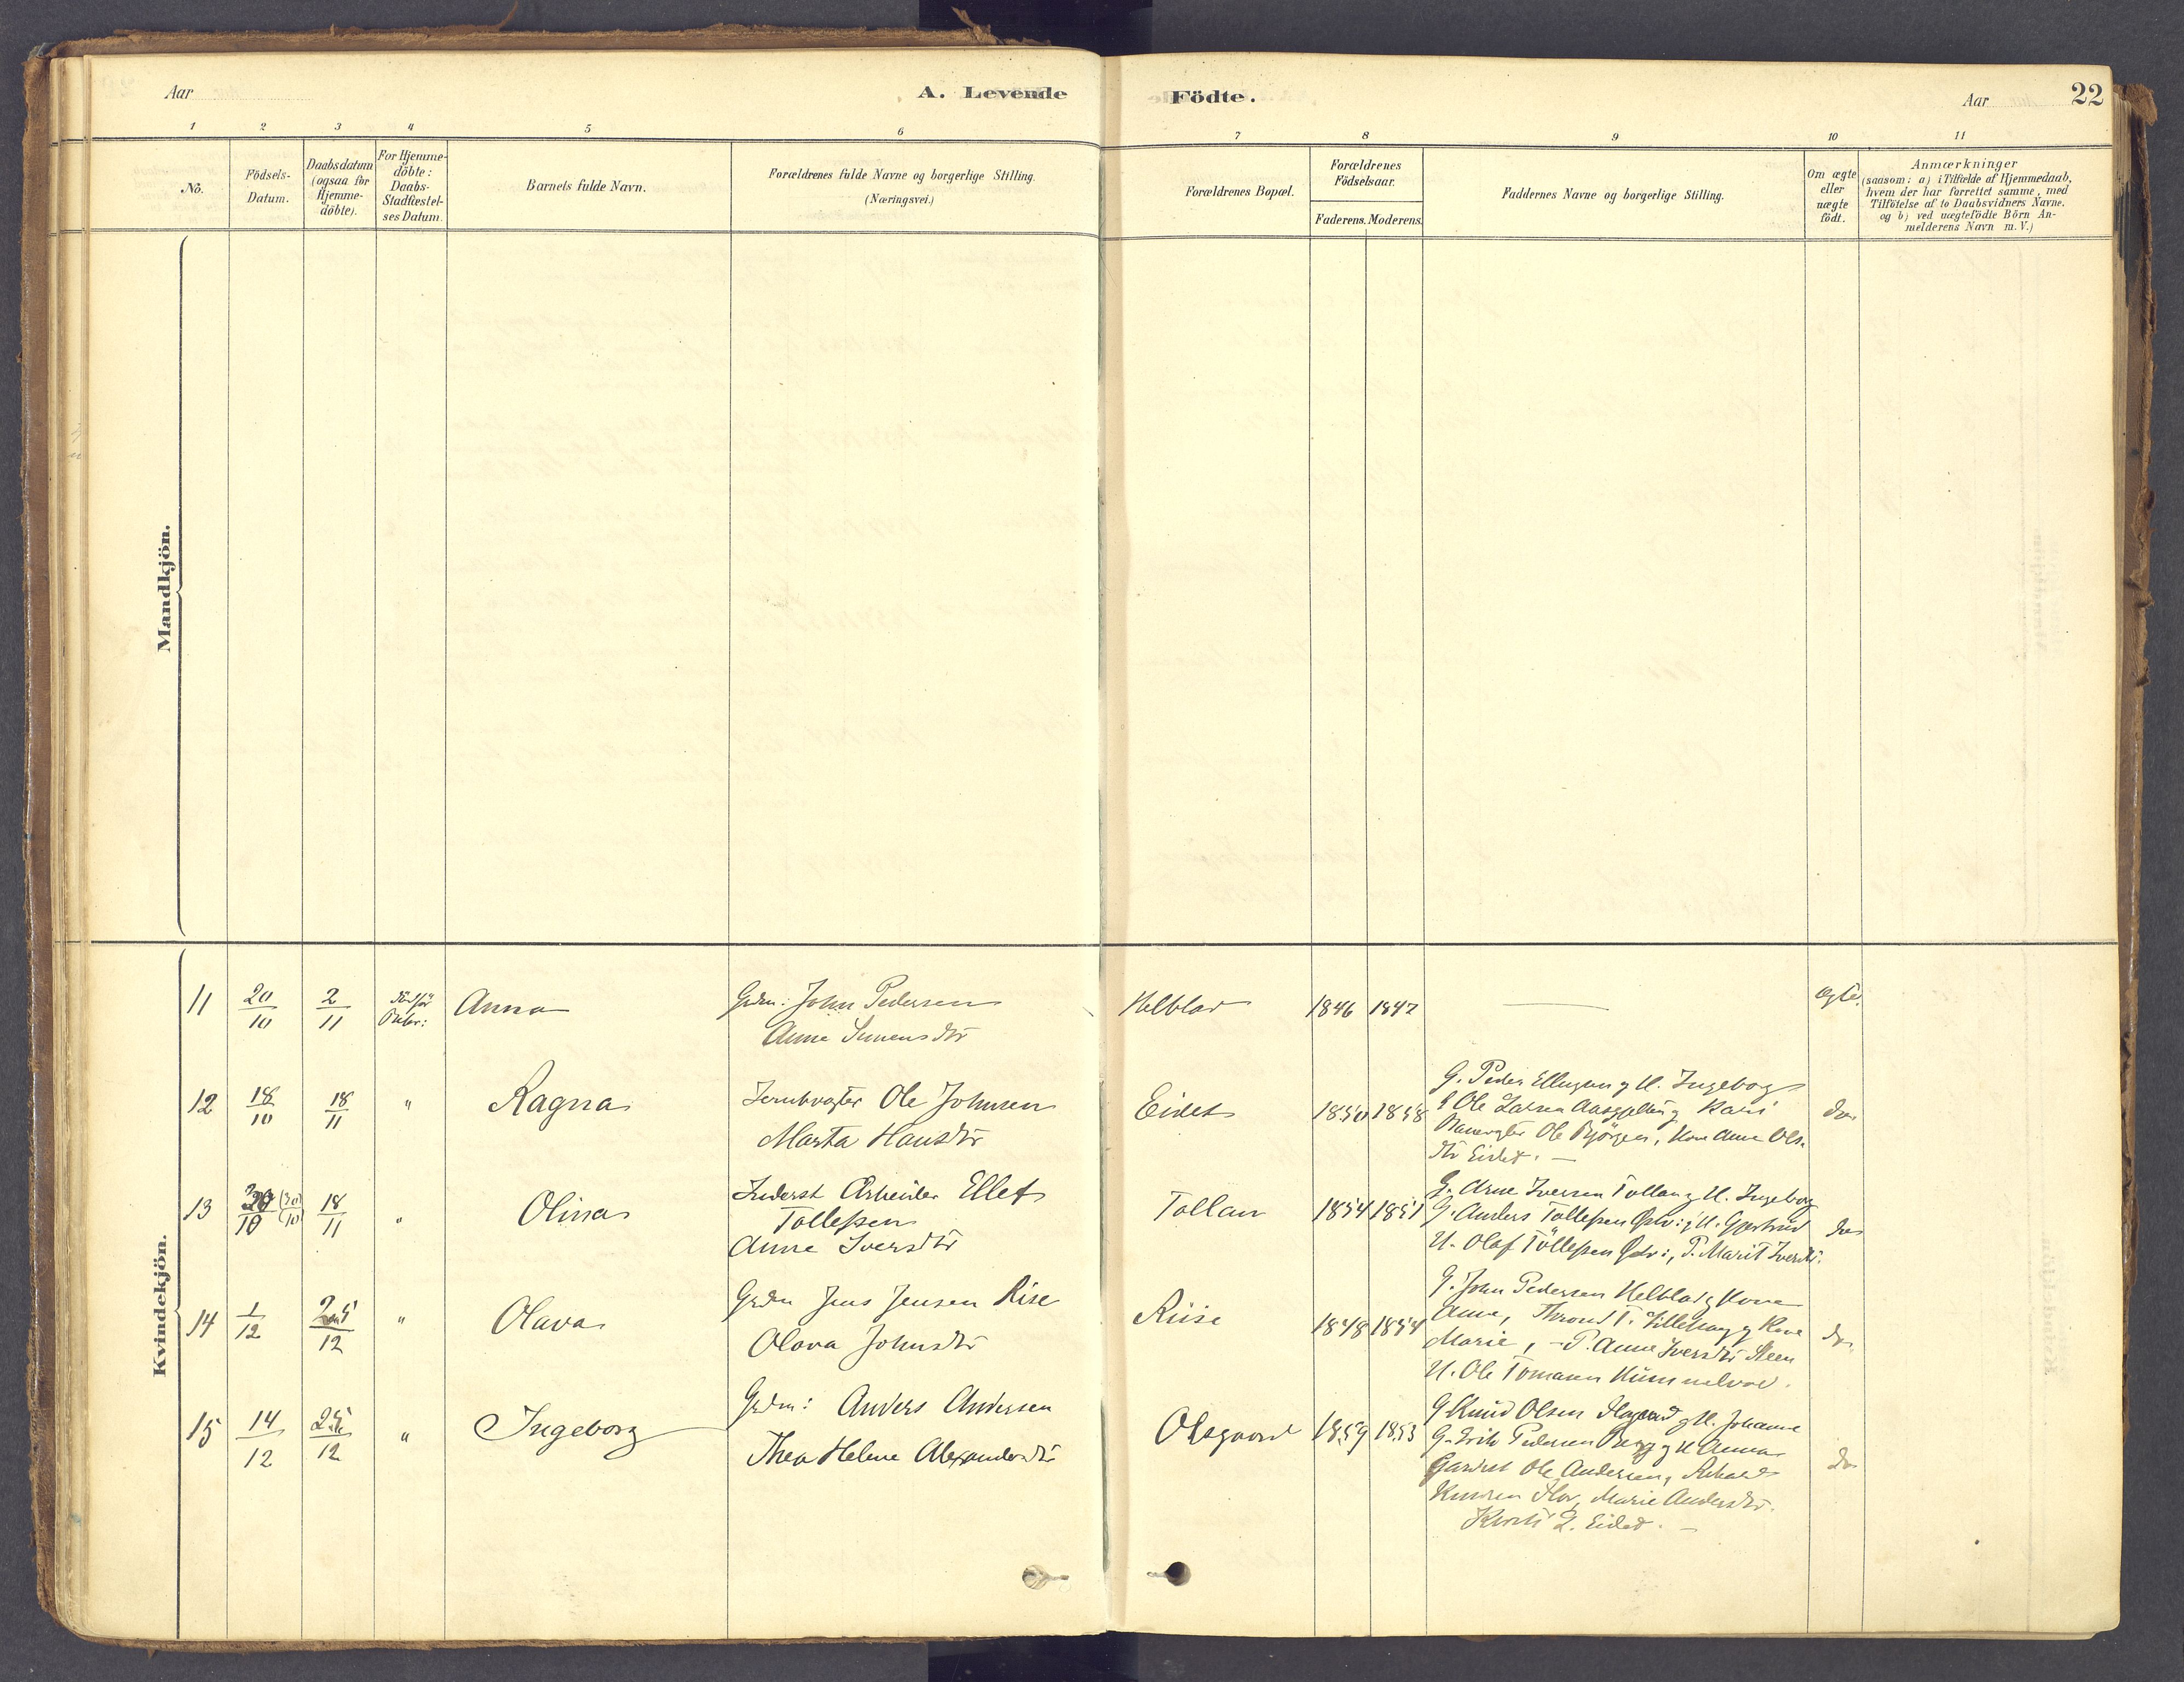 Aar
A. Levende
Födte.
Aar
22
1 2 3 4 5 6 7 8 9 10 11
No.
Födsels-
Datum.
Daabsdatum
(ogsaa for
Hjemme-
döbte).
For Hjemme-
döbte:
Daabs-
Stadfæstel-
ses Datum.
Barnets fulde Navn.
Forældrenes fulde Navne og borgerlige Stilling.
(Næringsvei.)
Forældrenes Bopæl.
Forældrenes
Födselsaar.
Faderens. Moderens.
Faddernes Navne og borgerlige Stilling.
Om ægte
eller
uægte
födt.
Anmærkninger
(saasom: a) i Tilfælde af Hjemmedaab,
hvem der har forrettet samme, med
Tilföielse af to Daabsvidners Navne.
og b) ved uægtefödte Börn An-
melderens Navn m. V.)
Mandkjön.
Kvindekjön.
11 20/10 2/11
Anna
Grdm: John Pedersen
Anne Simensdtr
Helblad 1846 1847 —
ægte.
12 18/10 18/11 "
Ragna
Ole Johnsen
Marta Hansdtr
Eidet 1850 1858
G. Peder Ellingsen og H. Ingeborg
Ole Larsen og Kari
Banevogter Ole Kone Anne Ols-
dtr Eidet. —
do
13 (30/10) 18/11 "
Olina
Inderst Arbeider Ellef
Tollefsen
Anne Iversdtr
Tollan 1854 1851
G. Arne Iversen Tollan og H. Ingeborg
G. Anders Tollefsen H. Gjertrud
U. Olaf Tollefsen P. Marit Iversdtr.
do
14 1/12 25/12 "
Olava
Grdm Jens Jensen Rise
Olava Johnsdtr
Riise 1848 1854
G. John Pedersen Helblad og Kone
Anne, Thrond T. og Kone
Marie, - P. Anne Iversdtr Steen
U. Ole Tomasen
do
15 14/12 25/12 "
Ingeborg
Grdm: Anders Andersen
Thea Helene Alexandersdtr
Olsgaard 1859 1853
G Knud Olsen og H. Johanne
G. Erik Pedersen Berg og H Anna
Ole Andersen,
Knudsen Marie Andersdtr.
L. Eidet. —
do